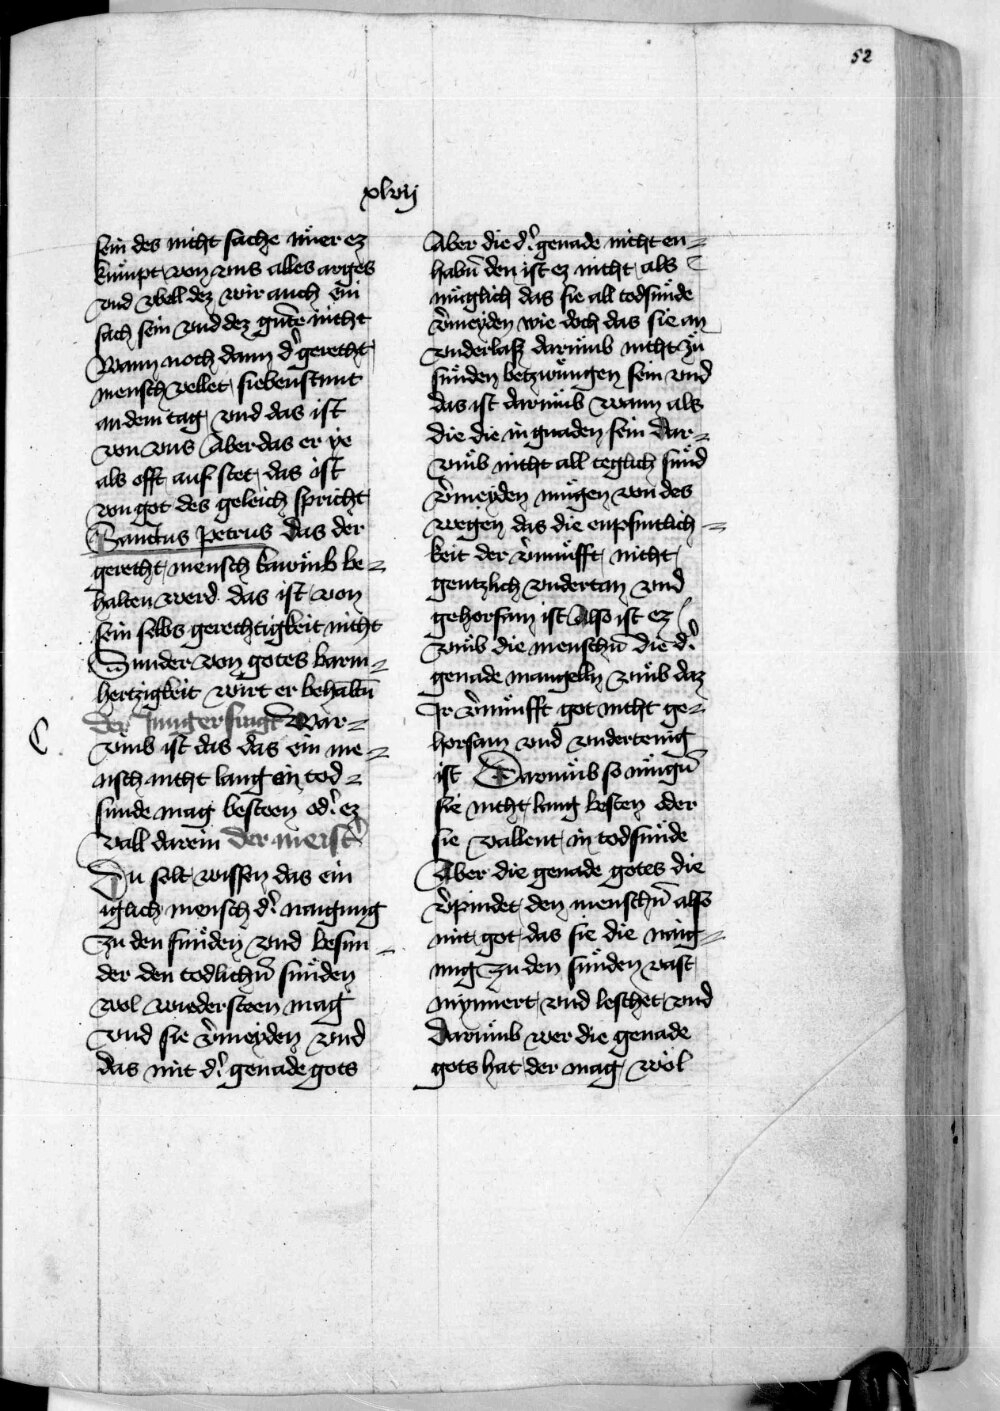 52
xlvij
sein des nicht sache wer ez
kumpt von vns alles arges
vnd vbell dez wir auch ein
sach sein vnd dez gute nicht
Wann noch dann d' gerecht
mensch vellet sibenstunt
an dem tag vnd das ist
von vns Aber das er ye
als offt auf stet das ist
von got des geleich spricht
Sanctus Petrus das der
gerecht mensch kawmb be=
halten werd das ist von
sein selbs gerechtigkeit nicht
Sunder von gotes barm=
hertzigkeit wirt er behaltn̄
der Junger fragt War=
vmb ist das das ein me=
nsch nicht lang an tod=
sunde mag besteen od' ez
vall darein der meist'
Du solt wissen das ein
iglich mensch d' naigung
zu den sunden vnd besun=
der den todlichn̄ sunden
wol wydersteen mag
vnd sie v'meyden vnd
das mit d' genade gots
Aber die d' genade nicht en=
habn̄ den ist ez nicht als
muglich das sie all todsunde
v'meyden wie doch das sie an
vnderlasz darumb nicht zu
sunden betzwungen sein vnd
das ist darumb wann als
die die in gnaden sein dar=
vmb nicht all teglich sund
v'meyden mugen von des
wegen das die enpfintlich=
keit der v'nufft nicht
gentzlich vndertan vnd
gehorsam ist Also ist ez
vmb die menschn̄ die d'
genade mangelln vmb daz
Ir v'nunfft got nicht ge=
horsam vnd vndertenig
ist Darumb so mugn̄
sie nicht lang besten oder
sie vallent in todsunde
Aber die genade gotes die
v'pindet den menschn̄ also
mit got das sie die naig=
ung zu den sunden vast
mynnert vnd leschet vnd
darumb wer die genade
gots hat der mag wol